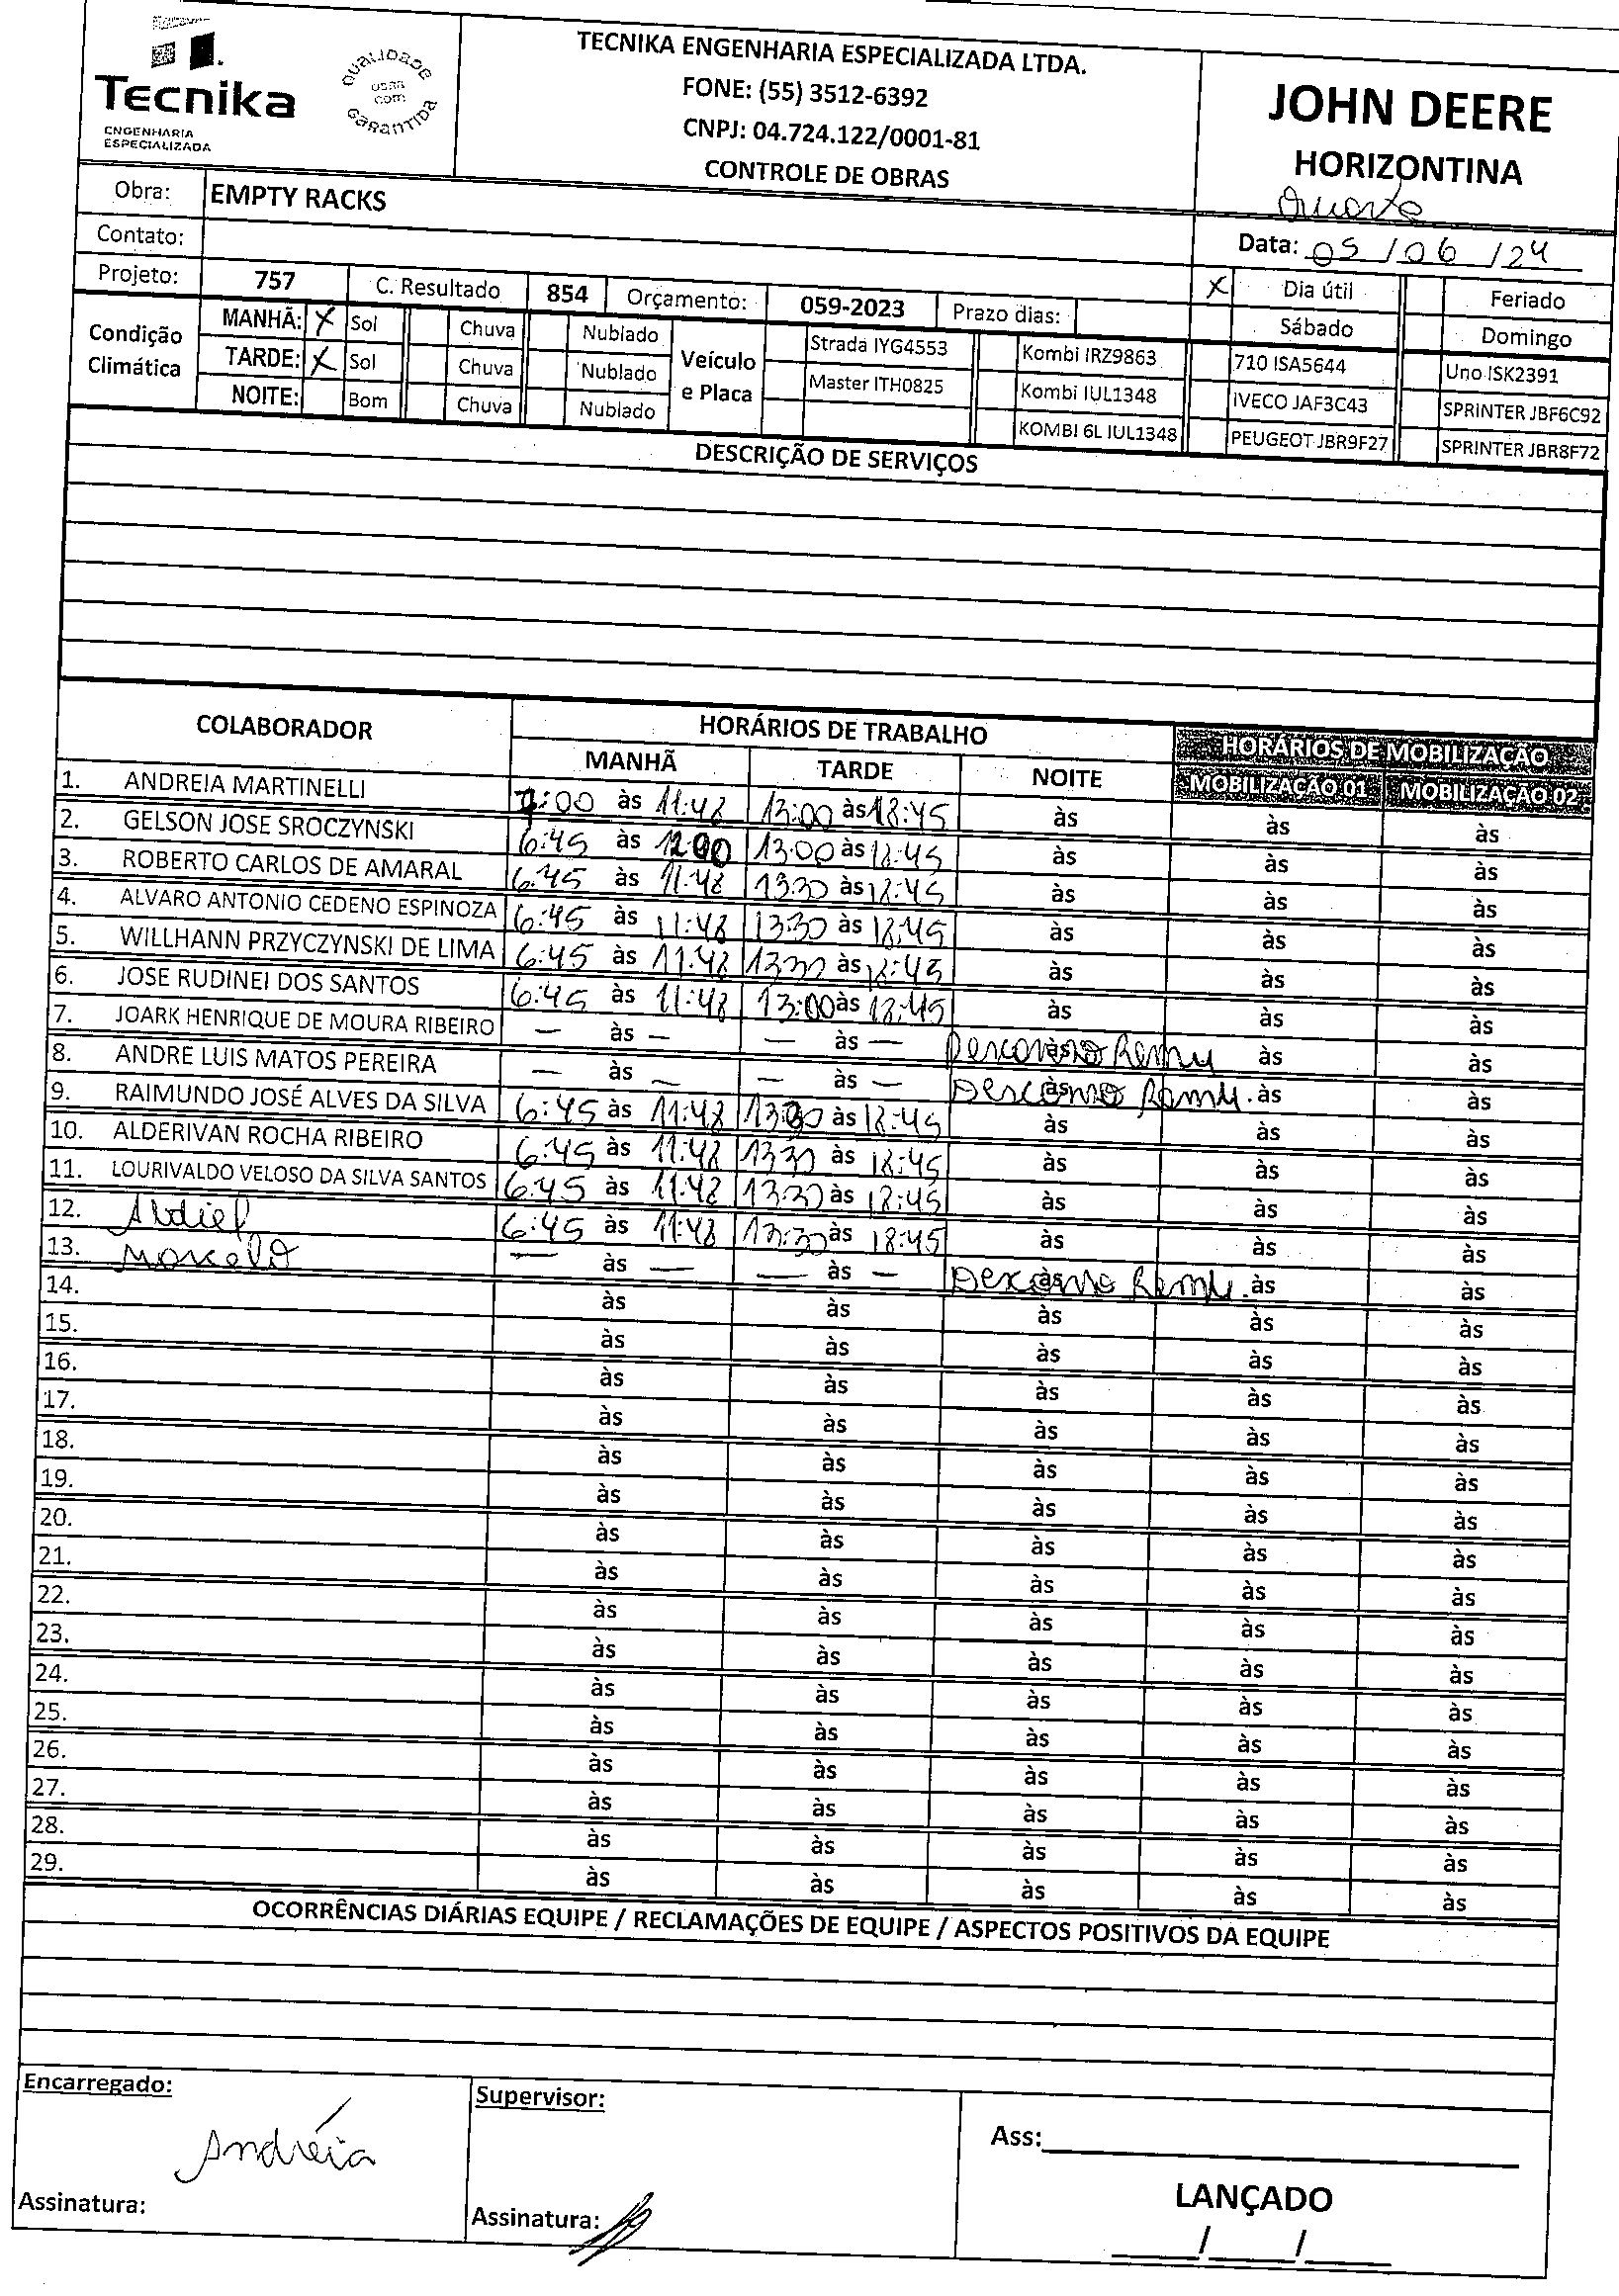 Tecnika
ENGENHARIA
ESPECIALIZADA
QUALIDADE
GARANTIDA
TECNIKA ENGENHARIA ESPECIALIZADA LTDA.
FONE: (55) 3512-6392
CNPJ: 04.724.122/0001-81
CONTROLE DE OBRAS
JOHN DEERE
HORIZONTINA
Quarta
Obra: EMPTY RACKS
Contato:
Data: 05/06/24
Projeto: 757 C. Resultado 854 Orçamento: 059-2023 Prazo dias: X Dia útil Feriado
Sábado Domingo
Condição Climática
MANHÃ: X Sol Chuva Nublado
TARDE: X Sol Chuva Nublado
NOITE: Bom Chuva Nublado
Veículo e Placa
Strada IYG4553 Kombi IRZ9863 710 ISA5644 Uno ISK2391
Master ITH0825 Kombi IUL1348 IVECO JAF3C43 SPRINTER JBF6C92
KOMBI 6L IUL1348 PEUGEOT JBR9F27 SPRINTER JBR8F72
DESCRIÇÃO DE SERVIÇOS
COLABORADOR HORÁRIOS DE TRABALHO HORÁRIOS DE MOBILIZAÇÃO
MANHÃ TARDE NOITE MOBILIZAÇÃO 01 MOBILIZAÇÃO 02
1. ANDREIA MARTINELLI 7:00 às 11:48 13:00 às 18:45 às às às
2. GELSON JOSE SROCZYNSKI 6:45 às 12:00 13:00 às 18:45 às às às
3. ROBERTO CARLOS DE AMARAL 6:45 às 11:48 13:30 às 18:45 às às às
4. ALVARO ANTONIO CEDENO ESPINOZA 6:45 às 11:48 13:30 às 18:45 às às às
5. WILLHANN PRZYCZYNSKI DE LIMA 6:45 às 11:48 13:30 às 18:45 às às às
6. JOSE RUDINEI DOS SANTOS 6:45 às 11:48 13:00 às 18:45 às às às
7. JOARK HENRIQUE DE MOURA RIBEIRO — às — — às — Descanso Remu às às às
8. ANDRE LUIS MATOS PEREIRA — às — — às — Descanso Remu. às às às
9. RAIMUNDO JOSÉ ALVES DA SILVA 6:45 às 11:48 13:30 às 18:45 às às às
10. ALDERIVAN ROCHA RIBEIRO 6:45 às 11:48 13:30 às 18:45 às às às
11. LOURIVALDO VELOSO DA SILVA SANTOS 6:45 às 11:48 13:30 às 18:45 às às às
12. Abdiel 6:45 às 11:48 13:30 às 18:45 às às às
13. Marcelo — às — — às — Descanso Remu. às às às
14. às às às às às
15. às às às às às
16. às às às às às
17. às às às às às
18. às às às às às
19. às às às às às
20. às às às às às
21. às às às às às
22. às às às às às
23. às às às às às
24. às às às às às
25. às às às às às
26. às às às às às
27. às às às às às
28. às às às às às
29. às às às às às
OCORRÊNCIAS DIÁRIAS EQUIPE / RECLAMAÇÕES DE EQUIPE / ASPECTOS POSITIVOS DA EQUIPE
Encarregado: Supervisor:
Andréia
Ass:
Assinatura: Assinatura:
LANÇADO
/ /